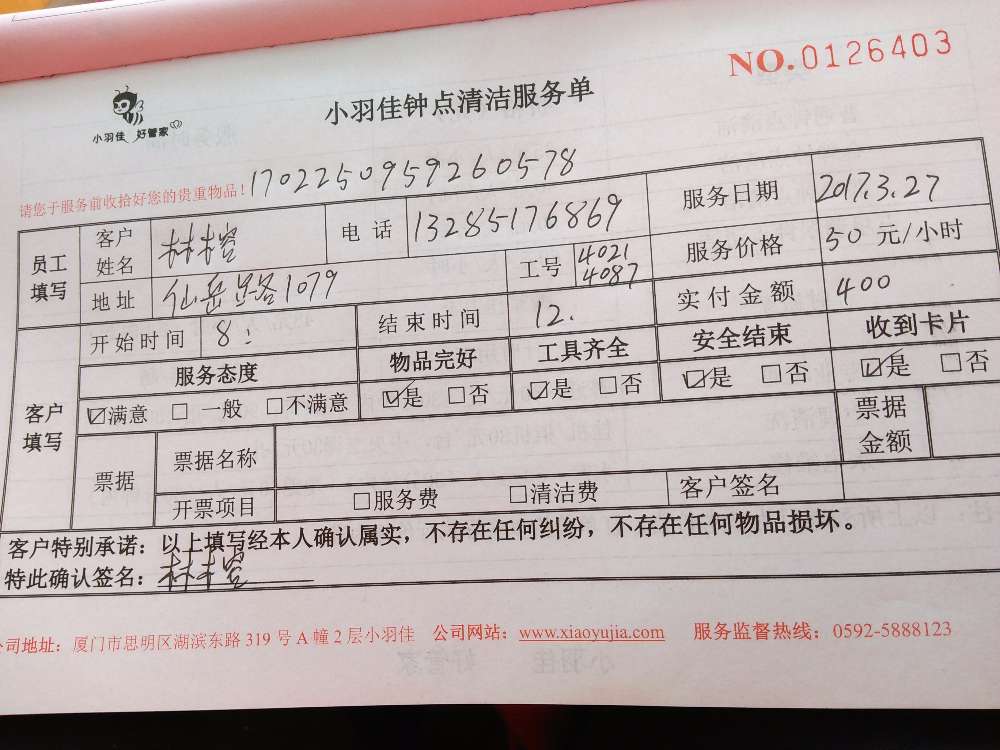 NO.0126403
小羽佳 好管家
小羽佳钟点清洁服务单
请您于服务前收拾好您的贵重物品！ 1702250959260578
员工填写 客户姓名 林榕 电话 13285176869 服务日期 2017.3.27
地址 仙岳路1079 工号 4021 4087 服务价格 50 元/小时
客户填写 开始时间 8: 结束时间 12. 实付金额 400
服务态度 物品完好 工具齐全 安全结束 收到卡片
☑满意 □ 一般 □不满意 ☑是 □否 ☑是 □否 ☑是 □否 ☑是 □否
票据 票据名称 票据金额
开票项目 □服务费 □清洁费 客户签名
客户特别承诺：以上填写经本人确认属实，不存在任何纠纷，不存在任何物品损坏。
特此确认签名：林榕
公司地址：厦门市思明区湖滨东路 319 号 A 幢 2 层小羽佳 公司网站：www.xiaoyujia.com 服务监督热线：0592-5888123